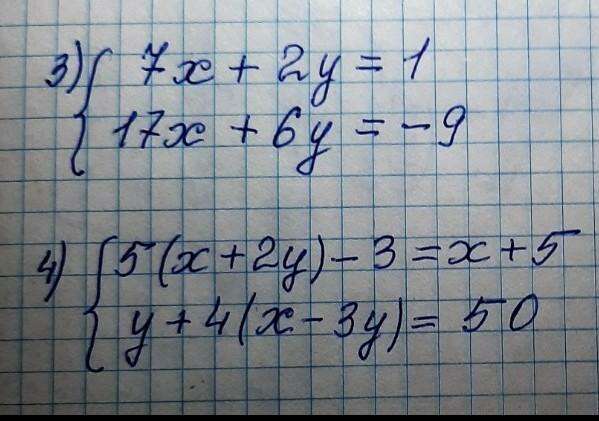 3) { 7x + 2y = 1
17x + 6y = -9
4) { 5(x + 2y) - 3 = x + 5
y + 4(x - 3y) = 50